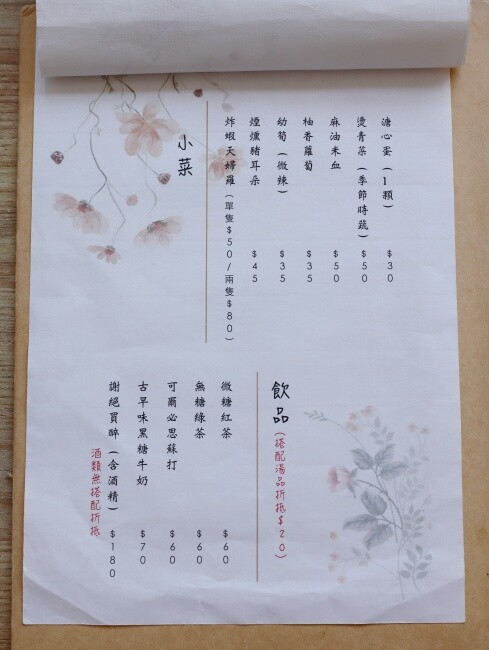 小菜
溏心蛋(1顆) $30
燙青菜(季節時蔬) $50
麻油米血 $50
柚香蘿蔔 $35
幼筍(微辣) $35
煙燻豬耳朵 $45
炸蝦天婦羅(單隻$50/兩隻$80)
飲品(搭配湯品折抵$20)
微糖紅茶 $60
無糖綠茶 $60
可爾必思蘇打 $60
古早味黑糖牛奶 $70
謝絕買醉(含酒精) $180
酒類無搭配折抵